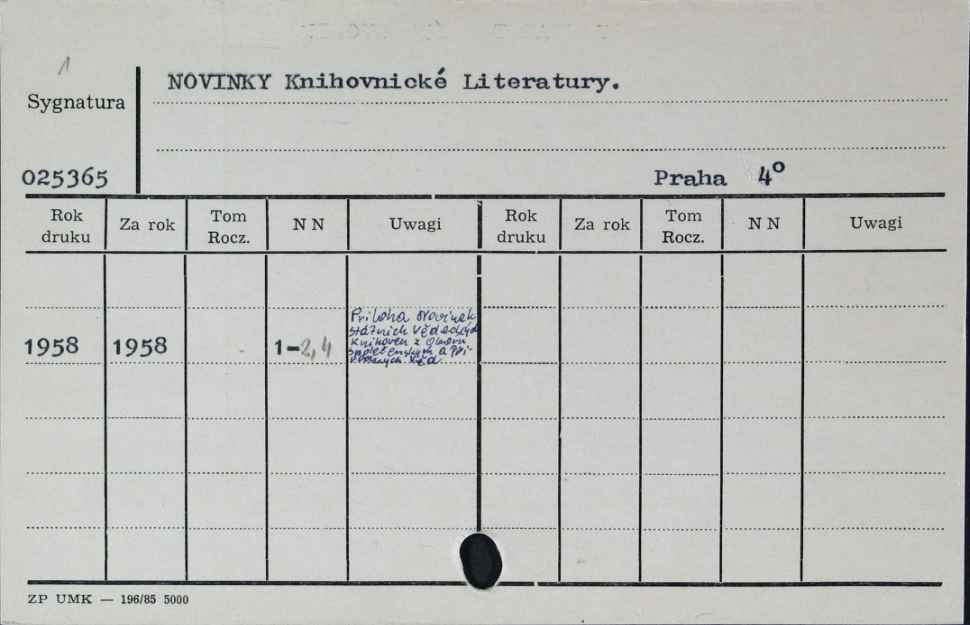 1
NOVINKY Knihovnické Literatury.
Sygnatura
025365
Praha 4º
Rok druku Za rok Tom Rocz. N N Uwagi Rok druku Za rok Tom Rocz. N N Uwagi
Priloha novinek
státnich vědeckých
1958 1958 1-2,4 knihoven z oboru
společenských a při
rodnych věd
ZP UMK — 196/85 5000